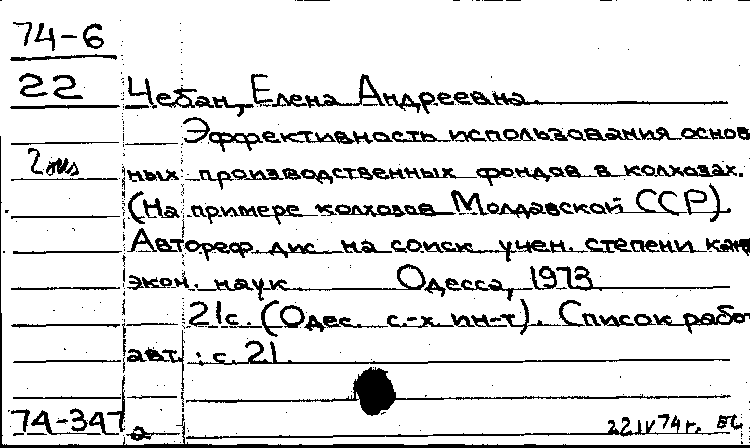 74-6
22
Чебан, Елена Андреевна.
Эффективность использования основ
2 экз
ных производственных фондов в колхозах.
(На примере колхозов Молдавской ССР).
Автореф. дис. на соиск. учен. степени канд
экон. наук. Одесса, 1973
21с. (Одес. с.-х. ин-т). Список работ
авт.: с. 21.
74-347 а
22 IV 74 г. ЕС